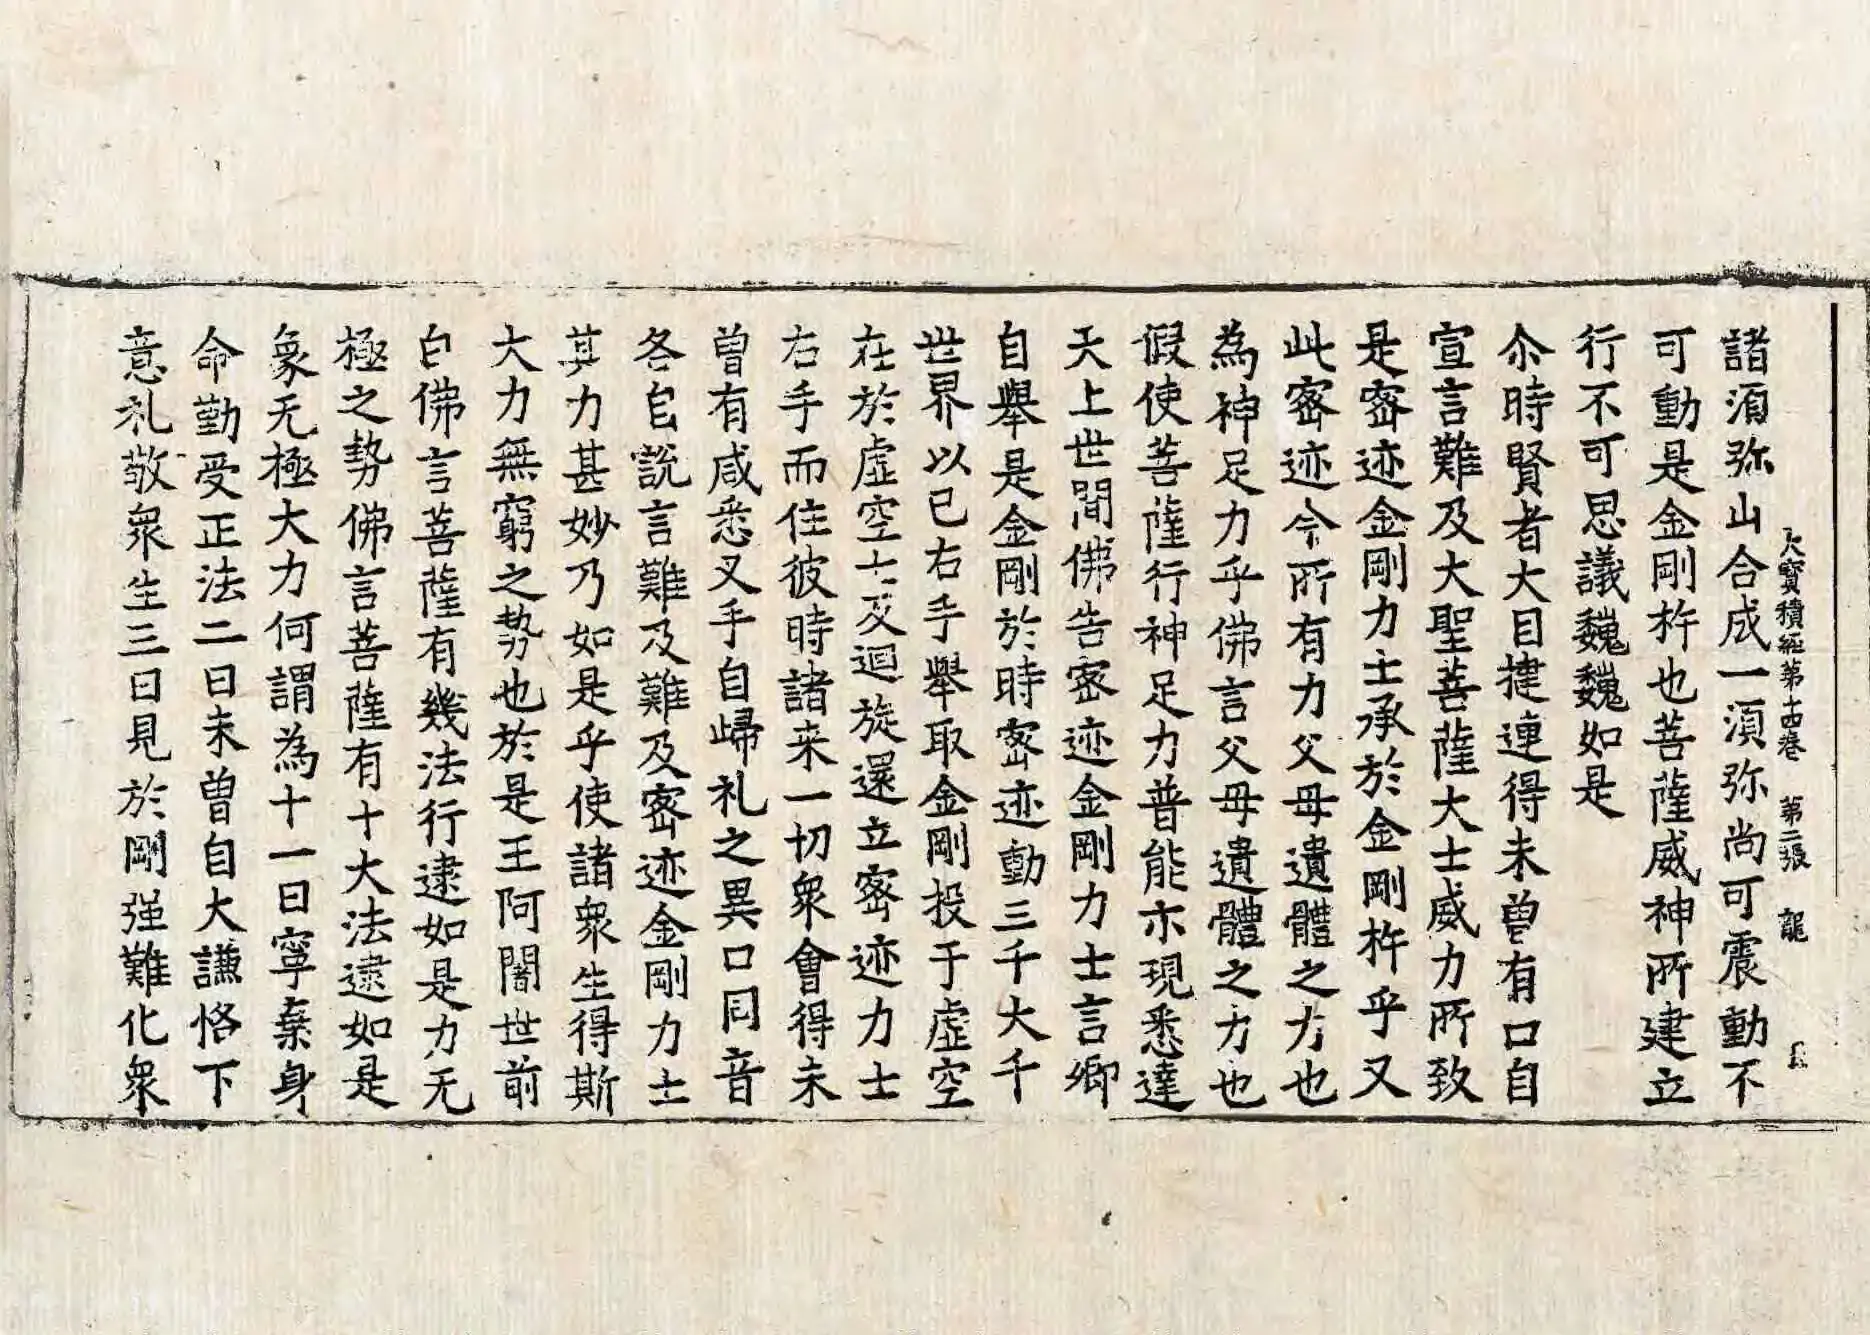 大寶積經第十四卷 第二張 龍
諸須弥山合成一須弥尚可震動不
可動是金剛杵也菩薩威神所建立
行不可思議巍巍如是
尒時賢者大目揵連得未曽有口自
宣言難及大聖菩薩大士威力所致
是密迹金剛力士承於金剛杵乎又
此密迹今所有力父母遺體之力也
為神足力乎佛言父母遺體之力也
假使菩薩行神足力普能亦現悉達
天上世間佛告密迹金剛力士言卿
自舉是金剛於時密迹動三千大千
世界以已右手舉取金剛投于虚空
在於虚空七反迴旋還立密迹力士
右手而住彼時諸来一切衆會得未
曽有咸悉叉手自歸礼之異口同音
各自說言難及難及密迹金剛力士
其力甚妙乃如是乎使諸衆生得斯
大力無窮之勢也於是王阿闍世前
白佛言菩薩有幾法行逮如是力无
極之勢佛言菩薩有十大法逮如是
象无極大力何謂為十一曰寧棄身
命勤受正法二曰未曽自大謙恪下
意礼敬衆生三曰見於剛强難化衆